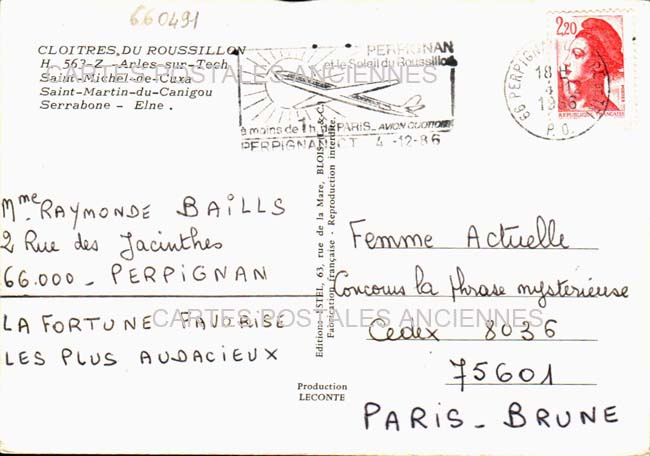 660491
CLOITRES DU ROUSSILLON
H. 563-Z - Arles-sur-Tech
Saint-Michel-de-Cuxa
Saint-Martin-du-Canigou
Serrabone - Elne .
PERPIGNAN
et le Soleil du Roussillon
à moins de 1 h. de PARIS_ AVION QUOTIDIEN
PERPIGNAN CT 4 -12-86
2,20
66 PERPIGNAN
18 H
4
1986
P.O.
RÉPUBLIQUE FRANÇAISE
POSTES
CARTES POSTALES ANCIENNES
Mme RAYMONDE BAILLS
2 Rue des Jacinthes
66.000 _ PERPIGNAN
LA FORTUNE FAVORISE
LES PLUS AUDACIEUX
Editions ESTEL, 63, rue de la Mare, BLOIS (L.-&-C.)
Fabrication française - Reproduction interdite.
Production
LECONTE
Femme Actuelle
Concours la phrase mystérieuse
Cedex 8036
75601
PARIS_ BRUNE
CARTES POSTALES ANCIENNES